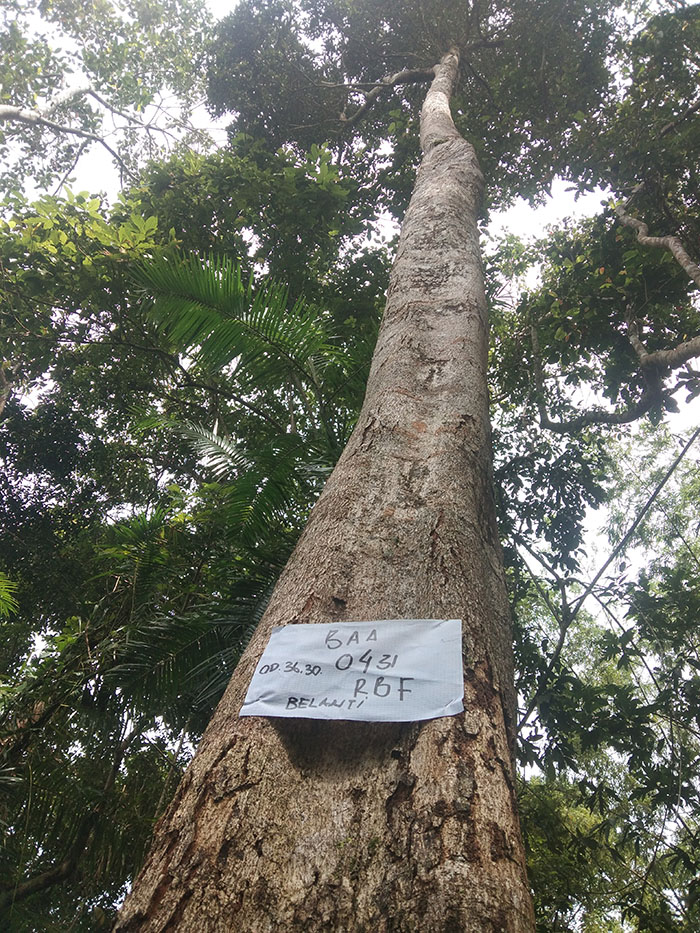 BAA
OD.36.30. 0431
RBF
BELANTI